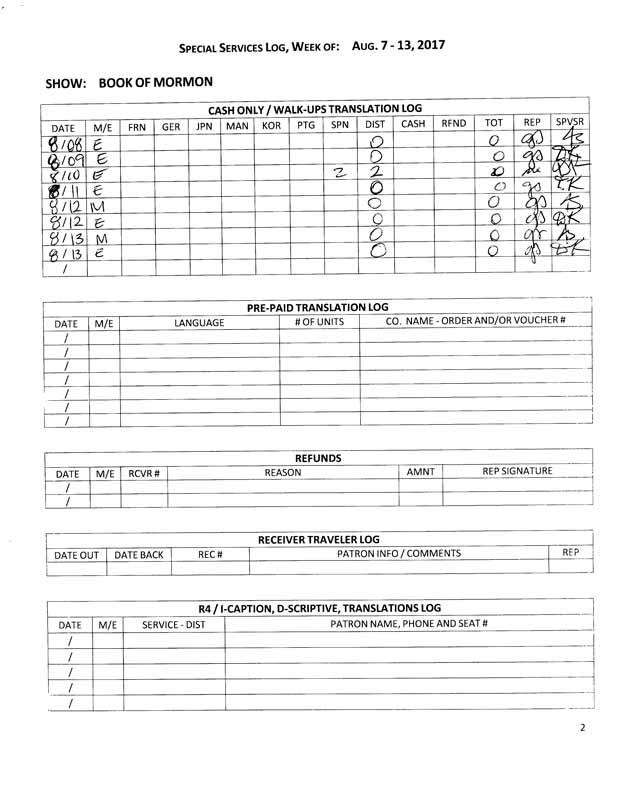 SPECIAL SERVICES LOG, WEEK OF: AUG. 7 - 13, 2017
SHOW: BOOK OF MORMON
CASH ONLY / WALK-UPS TRANSLATION LOG
DATE M/E FRN GER JPN MAN KOR PTG SPN DIST CASH RFND TOT REP SPVSR
8/08 E 0 0
8/09 E 0 0
8/10 E 2 2
8/11 E 0 0
8/12 M 0 0
8/12 E 0 0
8/13 M 0 0
8/13 E 0 0
/
PRE-PAID TRANSLATION LOG
DATE M/E LANGUAGE # OF UNITS CO. NAME - ORDER AND/OR VOUCHER #
/
/
/
/
/
/
/
REFUNDS
DATE M/E RCVR # REASON AMNT REP SIGNATURE
/
/
RECEIVER TRAVELER LOG
DATE OUT DATE BACK REC # PATRON INFO / COMMENTS REP
R4 / I-CAPTION, D-SCRIPTIVE, TRANSLATIONS LOG
DATE M/E SERVICE - DIST PATRON NAME, PHONE AND SEAT #
/
/
/
/
/
2